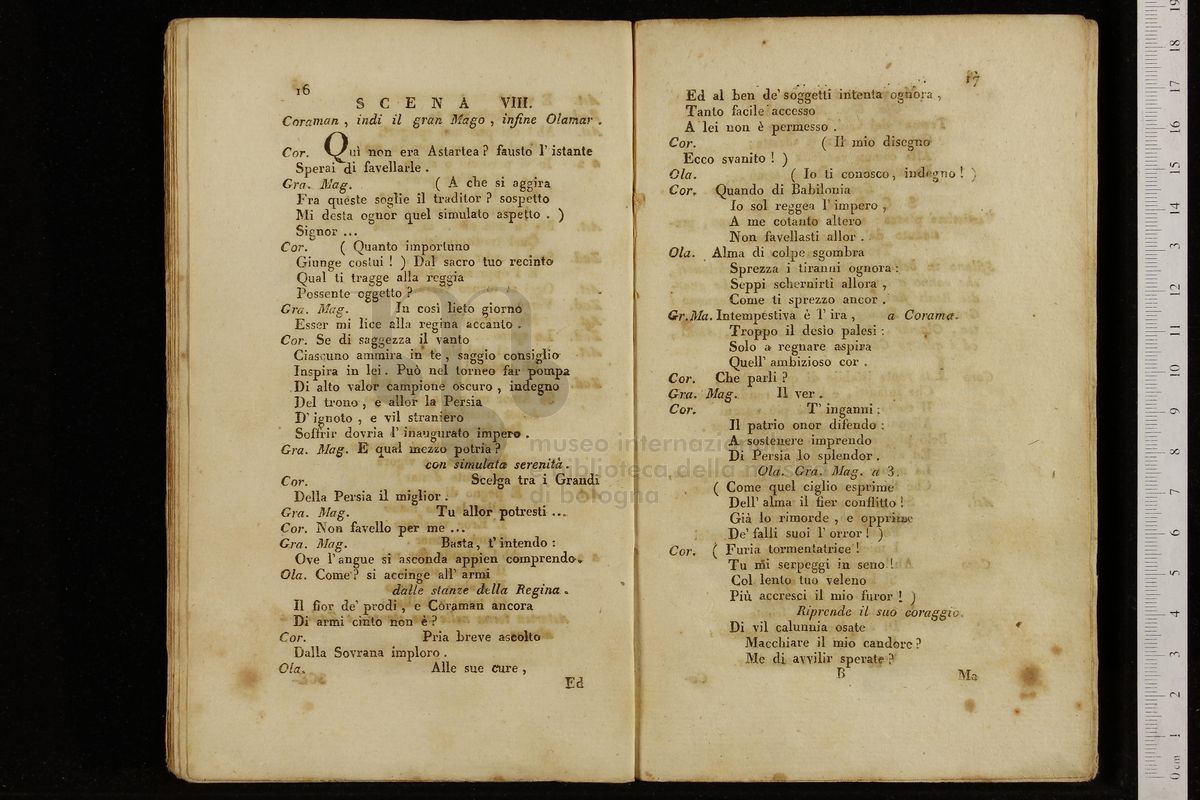 16
SCENA VIII.
Coraman, indi il gran Mago, infine Olamar.
Cor. Quì non era Astartea? fausto l'istante
Sperai di favellarle.
Gra. Mag. ( A che si aggira
Fra queste soglie il traditor? sospetto
Mi desta ognor quel simulato aspetto. )
Signor ...
Cor. ( Quanto importuno
Giunge costui! ) Dal sacro tuo recinto
Qual ti tragge alla reggia
Possente oggetto?
Gra. Mag. In così lieto giorno
Esser mi lice alla regina accanto.
Cor. Se di saggezza il vanto
Ciascuno ammira in te, saggio consiglio
Inspira in lei. Può nel torneo far pompa
Di alto valor campione oscuro, indegno
Del trono, e allor la Persia
D'ignoto, e vil straniero
Soffrir dovria l'inaugurato impero.
Gra. Mag. E qual mezzo potria?
con simulata serenità.
Cor. Scelga tra i Grandi
Della Persia il miglior.
Gra. Mag. Tu allor potresti ...
Cor. Non favello per me ...
Gra. Mag. Basta, t'intendo:
Ove l'angue si asconda appien comprendo.
Ola. Come? si accinge all'armi
dalle stanze della Regina.
Il fior de' prodi, e Coraman ancora
Di armi cinto non è?
Cor. Pria breve ascolto
Dalla Sovrana imploro.
Ola. Alle sue cure,
Ed
17
Ed al ben de' soggetti intenta ognora,
Tanto facile accesso
A lei non è permesso.
Cor. ( Il mio disegno
Ecco svanito! )
Ola. ( Io ti conosco, indegno! )
Cor. Quando di Babilonia
Io sol reggea l'impero,
A me cotanto altero
Non favellasti allor.
Ola. Alma di colpe sgombra
Sprezza i tiranni ognora:
Seppi schernirti allora,
Come ti sprezzo ancor.
Gr.Ma. Intempestiva è l'ira, a Corama.
Troppo il desio palesi:
Solo a regnare aspira
Quell'ambizioso cor.
Cor. Che parli?
Gra. Mag. Il ver.
Cor. T'inganni:
Il patrio onor difendo:
A sostenere imprendo
Di Persia lo splendor.
Ola. Gra. Mag. a 3.
( Come quel ciglio esprime
Dell'alma il fier conflitto!
Già lo rimorde, e opprime
De' falli suoi l'orror! )
Cor. ( Furia tormentatrice!
Tu mi serpeggi in seno!
Col lento tuo veleno
Più accresci il mio furor! )
Riprende il suo coraggio.
Di vil calunnia osate
Macchiare il mio candore?
Me di avvilir sperate?
B Ma
museo internazio
e biblioteca della mus
di bologna